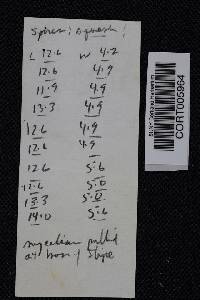 spores; squash!
L 12.6 W 4.2
12.6 4.9
11.9 4.9
13.3 4.9
12.6 4.9
12.6 4.9
12.6 5.6
12.6 5.0
13.3 5.0
14.0 5.6
mycelium pallid
at base of stipe
SUNY Cortland Herbarium
CORT005964